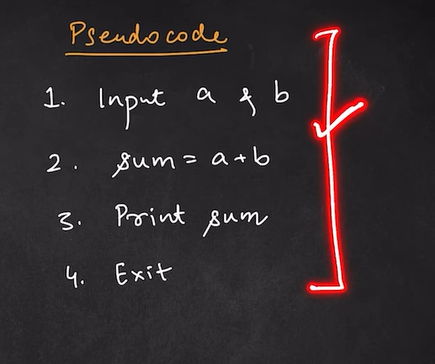 Pseudocode
1. Input a & b
2. sum = a+b
3. Print sum
4. Exit